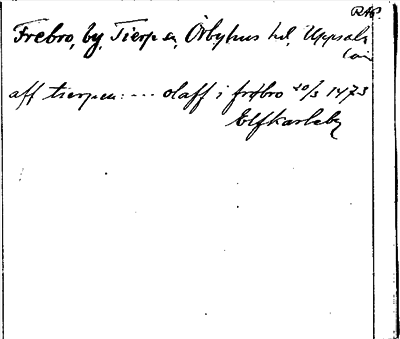 RAP.
Frebro, by, Tierp sn, Örbyhus hd, Uppsala
län
aff tierpen: --- olaff i frøbro 20/3 1473
Elfkarleby